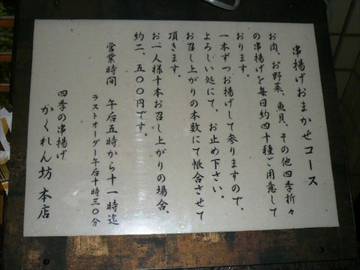 串揚げおまかせコース
お肉、お野菜、魚貝、その他四季折々
の串揚げを毎日約四十種ご用意して
おります。
一本ずつお揚げして参りますので、
よろしい処にて、お止め下さい。
お召し上がりの本数にて帳合させて
頂きます。
お一人様十本お召し上がりの場合、
約二、五〇〇円です。
営業時間 午後五時から十一時迄
ラストオーダー午後十時三〇分
四季の串揚げ
かくれん坊 本店